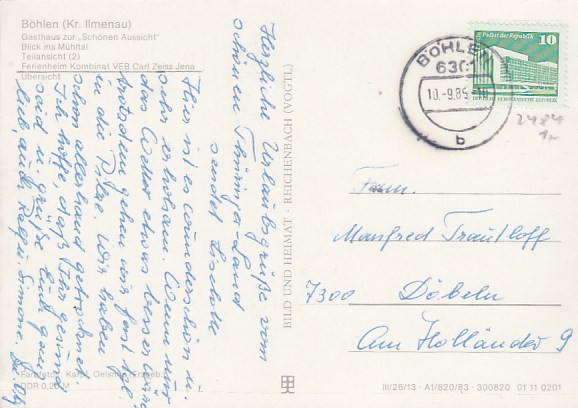 Böhlen (Kr. Ilmenau)
Gasthaus zur „Schönen Aussicht"
Blick ins Mühltal
Teilansicht (2)
Ferienheim Kombinat VEB Carl Zeiss Jena
Übersicht
Herzliche Urlaubsgrüße vom
schönen Thüringer-Land
sendet
Hier ist es wunderschön u.
sehr erholsam. Wenn nur
das Wetter etwas besser wäre,
trotzdem gehen wir fast tgl.
in die Pilze. Wir haben
schon allerhand getrocknet.
Ich hoffe, daß Ihr gesund
seid u. grüße Euch ganz
lieb, auch Ralf u. Simone.
Farbfotos: Karpf, Oelsnitz (Erzgeb.)
DDR 0,20 M
BILD UND HEIMAT · REICHENBACH (VOGTL)
Palast der Republik 10
BÖHLEN
6301
10.-9.85
b
2484
Fam.
Manfred Trautloff
7300 Döbeln
Am Holländer 9
III/26/13 · A1/820/83 · 300820 01 11 0201